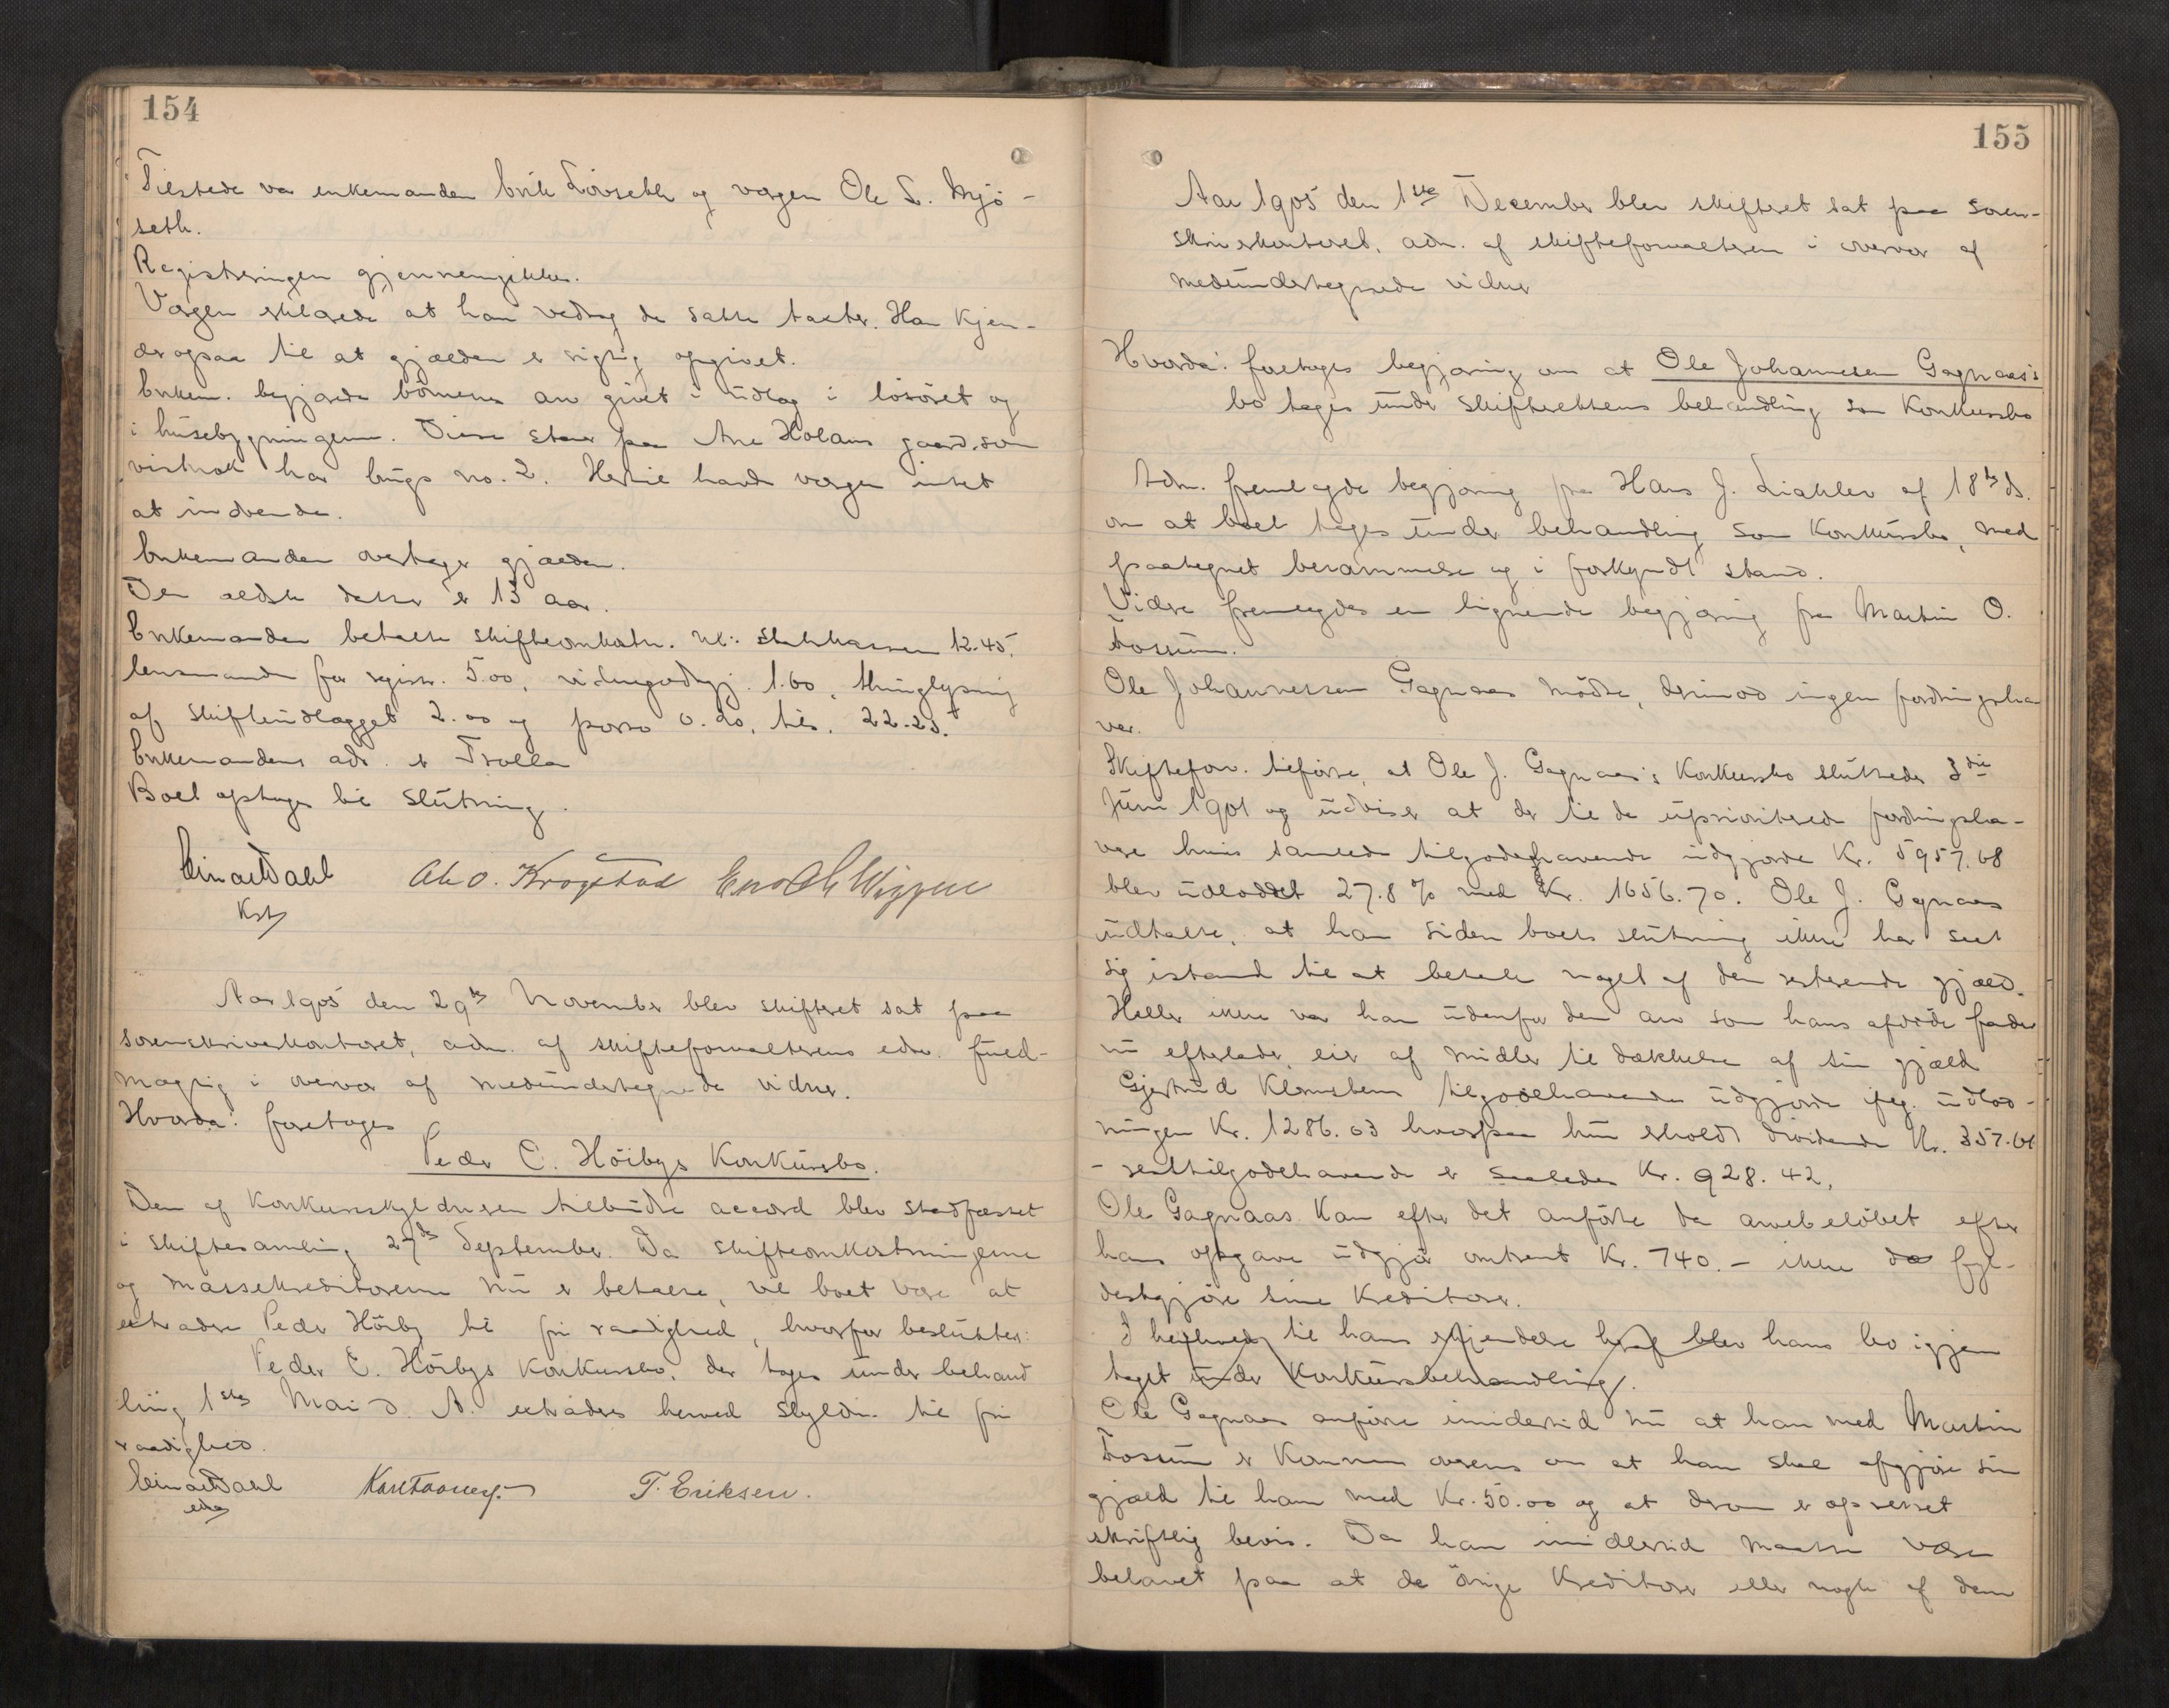 154
Tilstede var enkemanden Erik Lövseth og vergen Ole L. Mjö-
seth.
Registreringen gjennemgikkes.
Vergen erklærede at han vedtog de satte takster. Han kjen-
der ogsaa til at gjælden er rigtig opgivet.
Enkem. begjærede börnenes arv givet i udlæg i lösöret og
i husebygningerne. Disse staar paa Are Holans gaard som
vistnok har brugs no. 2. Hertil havde vergen intet
at indvende.
Enkemanden overtager gjælden.
Den ældste datter er 13 aar.
Enkemanden betalte skifteomkostn. nl: Statskassen 12.45,
lensmanden for registr. 5.00, vidnegodtgj. 1.60, thinglysning
af skifteudlægget 2.00 og porto 0.20, tils. 22.25.
Enkemandens adr. er Trolla
Boet optages til slutning.
Einar Dahl Ole O. Krogstad Enoch Wiggen
Kst
Aar 1905 den 29de November blev skifteret sat paa
sorenskriverkontoret, adm. af skifteforvalterens edsv. fuld-
mægtig i overvær af medundertegnede vidner.
Hvorda: foretoges
Peder C. Höibys Konkursbo.
Den af konkursskyldneren tilbudte accord blev stadfæstet
i skiftesamling 27de September. Da skifteomkostningerne
og massekreditorerne nu er betalte, vil boet være at
extradere Peder Höiby til fri raadighed, hvorfor besluttes:
Peder C. Höibys konkursbo, der toges under behand
ling 1ste Mai d. A. extraderes herved skyldn. til fri
raadighed.
Einar Dahl T. Eriksen.
eds
155
Aar 1905 den 1ste December blev skifteret sat paa soren-
skriverkontoret, adm. af skifteforvalteren i overvær af
medundertegnede vidner
Hvorda: foretoges begjæring om at Ole Johannesen Gagnaas's
bo tages under skifterettens behandling som konkursbo
Adm. fremlagde begjæring fra Hans J. Liaklev af 18de ds.
om at boet tages under behandling som konkursbo, med
paategnet berammelse og i forkyndt stand.
Videre fremlagdes en lignende begjæring fra Martin O.
Fossum.
Ole Johannessen Gagnaas mödte, derimod ingen fordringsha-
ver.
Skifteforv. tilförte, at Ole J. Gagnaas's konkursbo sluttedes 3die
Juni 1901 og udviser at der til de uprioriterede fordringsha-
vere hvis samlede tilgodehavende udgjorde Kr. 5957.68
blev udloddet 27.8 % med Kr. 1656.70. Ole J. Gagnaas
udtalte, at han siden boets slutning ikke har seet
sig istand til at betale noget af den resterende gjæld.
Heller ikke var han udenfor den arv som hans afdöde fader
nu efterlader eier af midler til dækkelse af sin gjæld
Gjertrud Klemetsens tilgodehavende udgjorde ifg. udlod-
ningen Kr. 1286.03 hvorpaa hun erholdt dividende Kr. 357.61
- resttilgodehavende er saaledes Kr. 928.42,
Ole Gagnaas kan efter det anförte da arvebelöbet efter
hans opgave udgjör omtrent Kr. 740.- ikke da fyl-
destgjöre sine kreditorer.
I henhold til hans erkjendelse heraf blev hans bo igjen
taget under konkursbehandling.
Ole Gagnaas anförte imidlertid nu at han med Martin
Fossum er kommen overens om at han skal afgjöre sin
gjæld til ham med Kr. 50.00 og at derom er oprettet
skriftlig bevis. Da han imidlertid maatte være
belavet paa at de övrige kreditorer eller nogle af dem